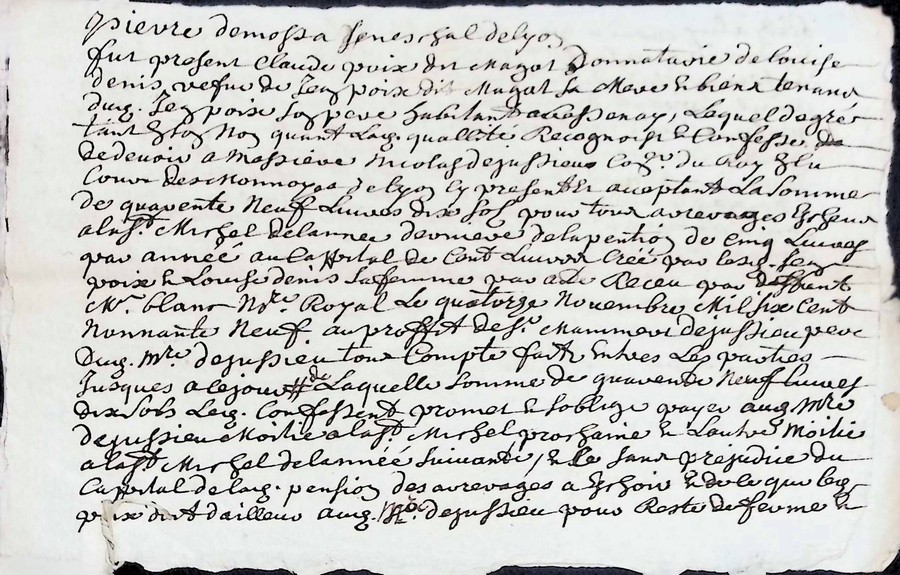 pierre de mossa seneschal de lyon
fut present Claude poix dit Magat Donnataire de Louise
denis vefve de Jean poix dit Magat sa Mere & bien tenant
dud. Jean poix son pere habitant a Lessenas, Lequel de gré
tant en son Nom quant Lad. quallité Recognoist & Confesse
de devoir a Messieve Nicolas dejussieu Con.er du Roy en la
Cour des Monnoyes de lyon cy present & aceptant La somme
de quarente Neuf Livres dix sols pour tous arrerages Escheus
a la st. Michel de lannee derniere de la pention de Cinq Livres
par année au Cappital de Cent Livres Creé par lesd. Jean
poix & Louise denis sa femme par acte Receu par deffunt
Me. blanc Nore. Royal Le quatorze Novembre Mil six Cent
Nonnante Neuf au proffit de sr. Mammert dejussieu pere
Dud. Mre. dejussieu tout Compte fait Entre Les parties
Jusques a ce jourdhuy Laquelle somme de quarente Neuf Livres
dix sols Led. Confessant promet & soblige payer aud. Mre
dejussieu Moitie a la st. Michel prochaine & Lautre Moitie
a la st. Michel de lannéé suivante, & ce sans prejudice du
Cappital de lad. pension des arrerages a Eschoir & de ce que led.
poix doit dailleur aud. Mre. dejussieu pour Reste de ferme &